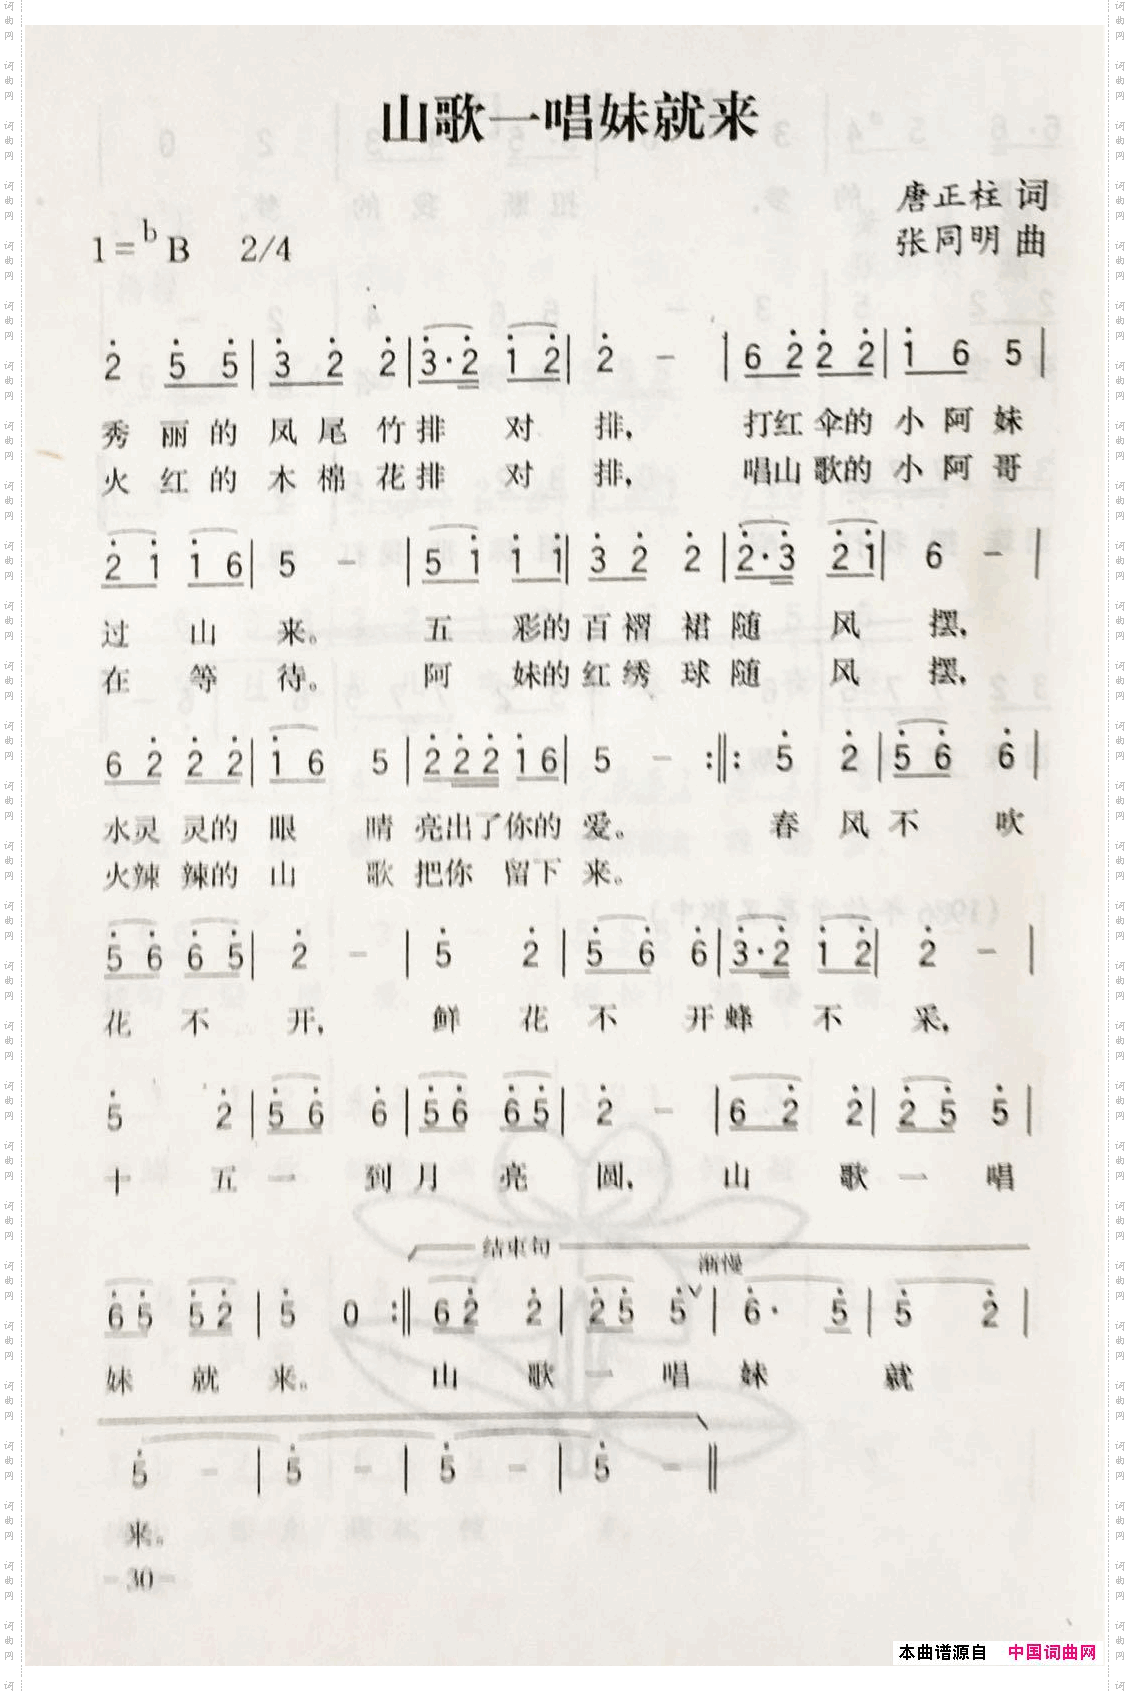 山歌一唱妹就来
唐正柱 词
1=bB 2/4 张同明 曲
2 5 5 | 3 2 2 | 3·2 1 2 | 2 - | 6 2 2 2 | 1 6 5 |
秀 丽 的 凤 尾 竹 排 对 排, 打红 伞的 小 阿 妹
火 红 的 木 棉 花 排 对 排, 唱山 歌的 小 阿 哥
2 1 1 6 | 5 - | 5 1 1 1 | 3 2 2 | 2·3 2 1 | 6 - |
过 山 来。 五 彩的 百 褶 裙 随 风 摆,
在 等 待。 阿 妹的 红 绣 球 随 风 摆,
6 2 2 2 | 1 6 5 | 2 2 2 1 6 | 5 - :‖: 5 2 | 5 6 6 |
水灵 灵的 眼 睛 亮出了你的 爱。 春 风 不 吹
火辣 辣的 山 歌 把你 留下 来。
5 6 6 5 | 2 - | 5 2 | 5 6 6 | 3·2 1 2 | 2 - |
花 不 开, 鲜 花 不 开 蜂 不 采,
5 2 | 5 6 6 | 5 6 6 5 | 2 - | 6 2 2 | 2 5 5 |
十 五 一 到 月 亮 圆, 山 歌 一 唱
结束句
渐慢
6 5 5 2 | 5 0 :‖ 6 2 2 | 2 5 5 | 6· 5 | 5 2 |
妹 就 来。 山 歌 一 唱 妹 就
5 - | 5 - | 5 - | 5 - ‖
来。
-30-
本曲谱源自 中国词曲网